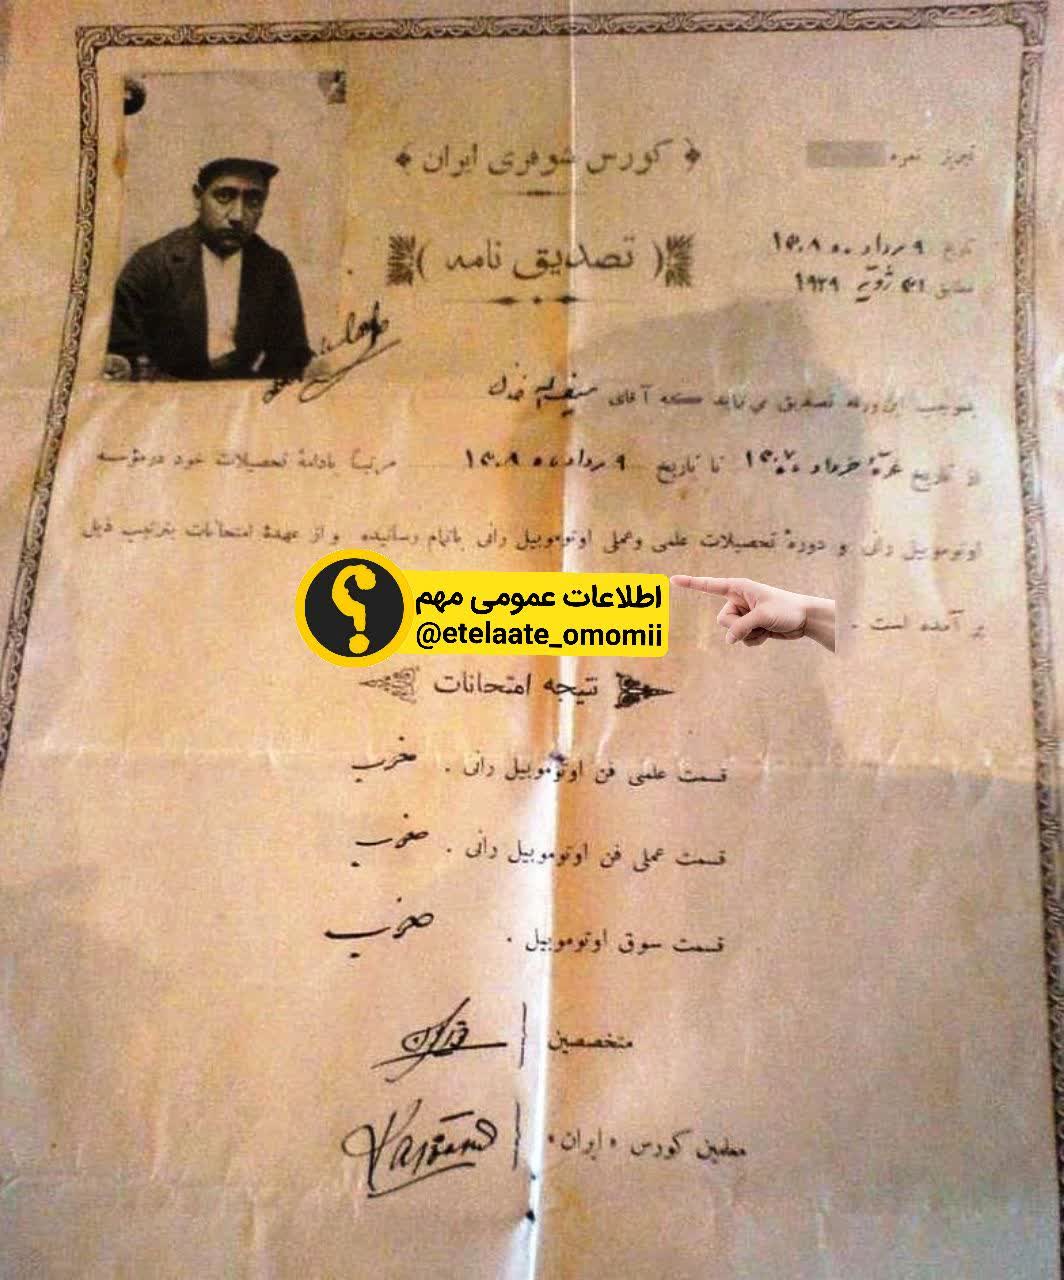 تبریز نمره
کورس شوفری ایران
تاریخ ۹ مرداد ۱۳۰۸
(تصدیق نامه)
مطابق ۳۱ ژویه ۱۹۲۹
بموجب این ورقه تصدیق می نماید که آقای
از تاریخ غره خرداد تا تاریخ ۹ مرداد ۱۳۰۸ مرتباً بادامهٔ تحصیلات خود در مؤسسه
اوتوموبیل رانی و دورهٔ تحصیلات علمی وعملی اوتوموبیل رانی باتمام رسانیده و از عهدهٔ امتحانات بترتیب ذیل
بر آمده است .
اطلاعات عمومی مهم
@etelaate_omomii
نتیجه امتحانات
قسمت علمی فن اوتوموبیل رانی . خوب
قسمت عملی فن اوتوموبیل رانی . خوب
قسمت سوق اوتوموبیل . خوب
متخصصین
معلمین کورس «ایران»